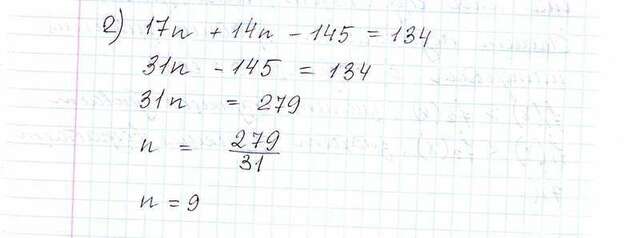 2) 17n + 14n - 145 = 134
31n - 145 = 134
31n = 279
n = 279/31
n = 9